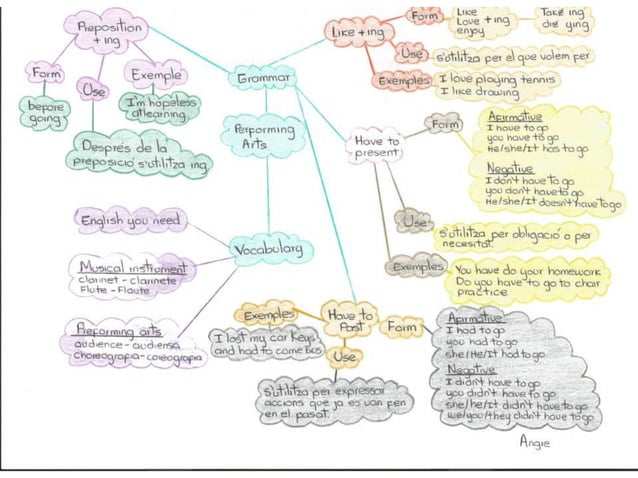 Preposition
+ ing
Form
before
going
Use
Després de la
preposició s'utilitza ing
Exemple
I'm hopeless
atlearning
Grammar
Performing
Arts
Vocabulary
English you need
Musical instrument
clarinet - clarinete
Flute - Flaute
Preforming arts
audience - audiensa
choreograpia - coreograpia
Like + ing
Form
Like
Love + ing
enjoy
Take ing
die ying
Use
s'utilitza per el que volem fer
Exemples
I love playing tennis
I like drawing
Have to
present
Form
Afirmative
I have to go
you have to go
He/she/It has to go
Negative
I don't have to go
you don't have to go
He/she/It doesn't have to go
Use
s'utilitza per obligació o per
necesitat.
Exemples
You have do your homework
Do you have to go to choir
practice
Have to
Past
Exemples
I lost my car keys
and had to come bus
Use
S'utilitza per expressar
accions que ja es van fen
en el pasat.
Form
Afirmative
I had to go
you had to go
she/He/It had to go
Negative
I didn't have to go
you didn't have to go
she/he/it didn't have to go
we/you/they didn't have to go
Angie